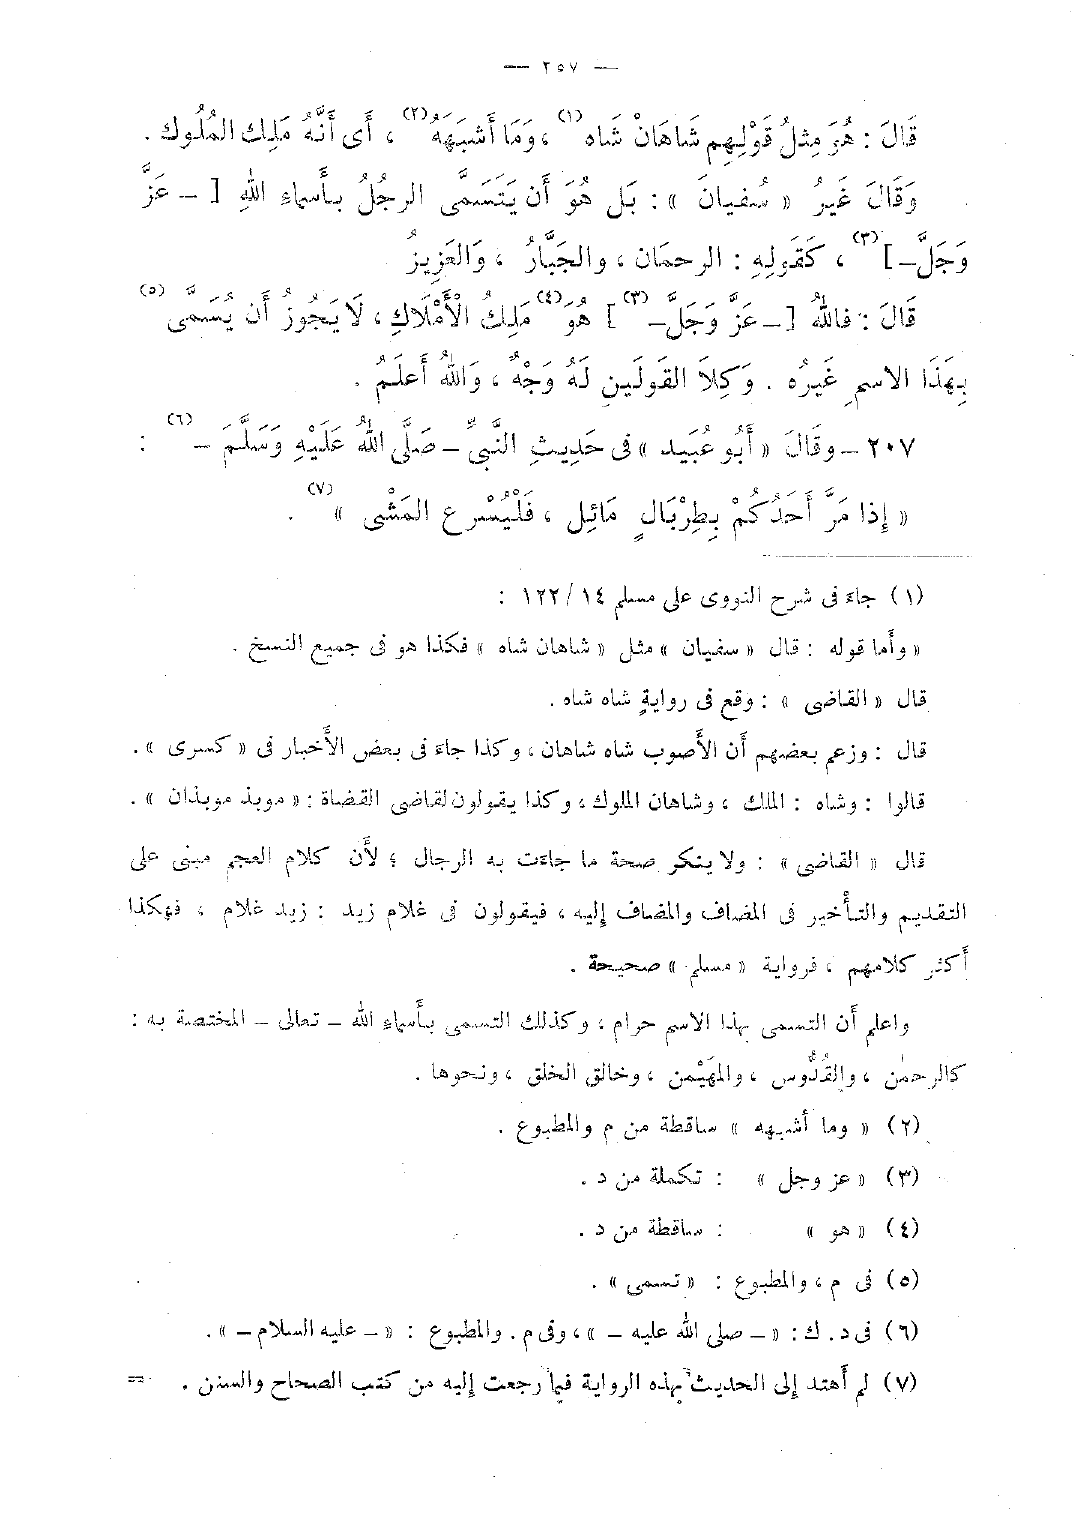 — ٢٥٧ —
قَالَ : هُوَ مِثلُ قَوْلِهِم شَاهَانْ شَاه (١) ، وَمَا أَشبَهَهُ (٢) ، أَى أَنَّهُ مَلِك المُلُوك .
وَقَالَ غَيرُ « سُفيانَ » : بَل هُوَ أَن يَتَسَمَّى الرجُلُ بأَسماءِ اللهِ [ – عَزَّ
وَجَلَّ – ] (٣) ، كَقَولِهِ : الرحمَان ، والجَبَّارُ ، وَالعَزِيزُ
قَالَ : فاللهُ [ – عَزَّ وَجَلَّ – ] (٣) هُوَ (٤) مَلِكُ الْأَمْلَاكِ ، لَا يَجُوزُ أَن يُسَمَّى (٥)
بِهَذَا الاسمِ غَيرُه . وَكِلاَ القَولَينِ لَهُ وَجْهٌ ، وَاللهُ أَعلَمُ .
٢٠٧ – وقَالَ « أَبُو عُبَيد » فى حَدِيثِ النَّبىِّ – صَلَّى اللهُ عَلَيْهِ وَسَلَّمَ – (٦) :
« إِذا مَرَّ أَحَدُكُمْ بِطِرْبَالٍ مَائِل ، فَلْيُسْرِع المَشْى » (٧) .
(١) جاءَ فى شرح النووى على مسلم ١٤/ ١٢٢ :
« وأَما قوله : قال « سفيان » مثل « شاهان شاه » فكذا هو فى جميع النسخ .
قال « القاضى » : وقع فى روايةٍ شاه شاه .
قال : وزعم بعضهم أَن الأَصوب شاه شاهان ، وكذا جاءَ فى بعض الأَخبار فى « كسرى » .
قالوا : وشاه : الملك ، وشاهان الملوك ، وكذا يقولون لقاضى القضاة : « موبذ موبذان » .
قال « القاضى » : ولا ينكر صحة ما جاءَت به الرجال ؛ لأَن كلام العجم مبنى على
التقديم والتأْخير فى المضاف والمضاف إليه ، فيقولون فى غلام زيد : زيد غلام ، فهكذا
أَكثر كلامهم ، فرواية « مسلم » صحيحة .
واعلم أَن التسمى بهذا الاسم حرام ، وكذلك التسمى بأَسماءِ الله – تعالى – المختصة به :
كالرحمٰن ، والقُدُّوس ، والمهَيْمن ، وخالق الخلق ، ونحوها .
(٢) « وما أَشبهه » ساقطة من م والمطبوع .
(٣) « عز وجل » : تكملة من د .
(٤) « هو » : ساقطة من د .
(٥) فى م ، والمطبوع : « تسمى » .
(٦) فى د . ك : « – صلى الله عليه – » ، وفى م . والمطبوع : « – عليه السلام – » .
(٧) لم أَهتد إِلى الحديث بهذه الرواية فيما رجعت إِليه من كتب الصحاح والسنن . =